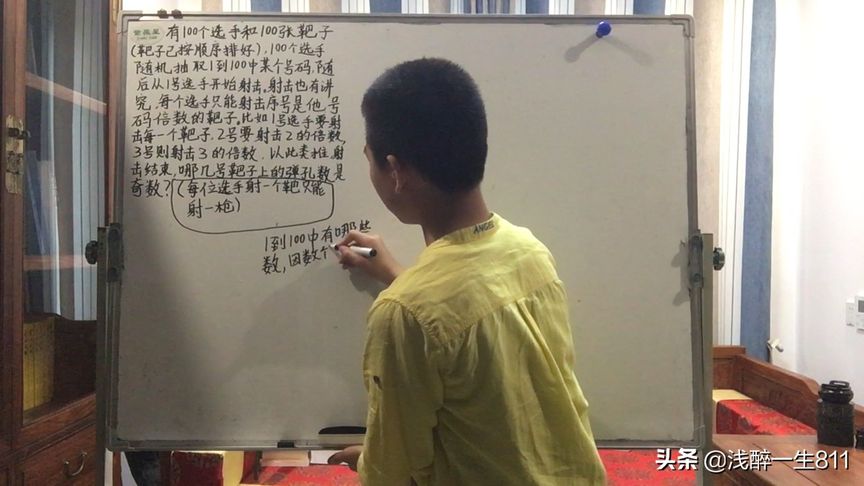 有100个选手和100张靶子
(靶子已按顺序排好),100个选手
随机抽取1到100中某个号码,随
后从1号选手开始射击。射击也有讲
究,每个选手只能射击序号是他号
码倍数的靶子。比如1号选手要射
击每一个靶子,2号要射击2的倍数,
3号则射击3的倍数,以此类推,射
击结束,哪几号靶子上的弹孔数是
奇数?(每位选手射一个靶只能
射一枪)
1到100中有哪些
数,因数个
ANGEL
头条 @浅醉一生811